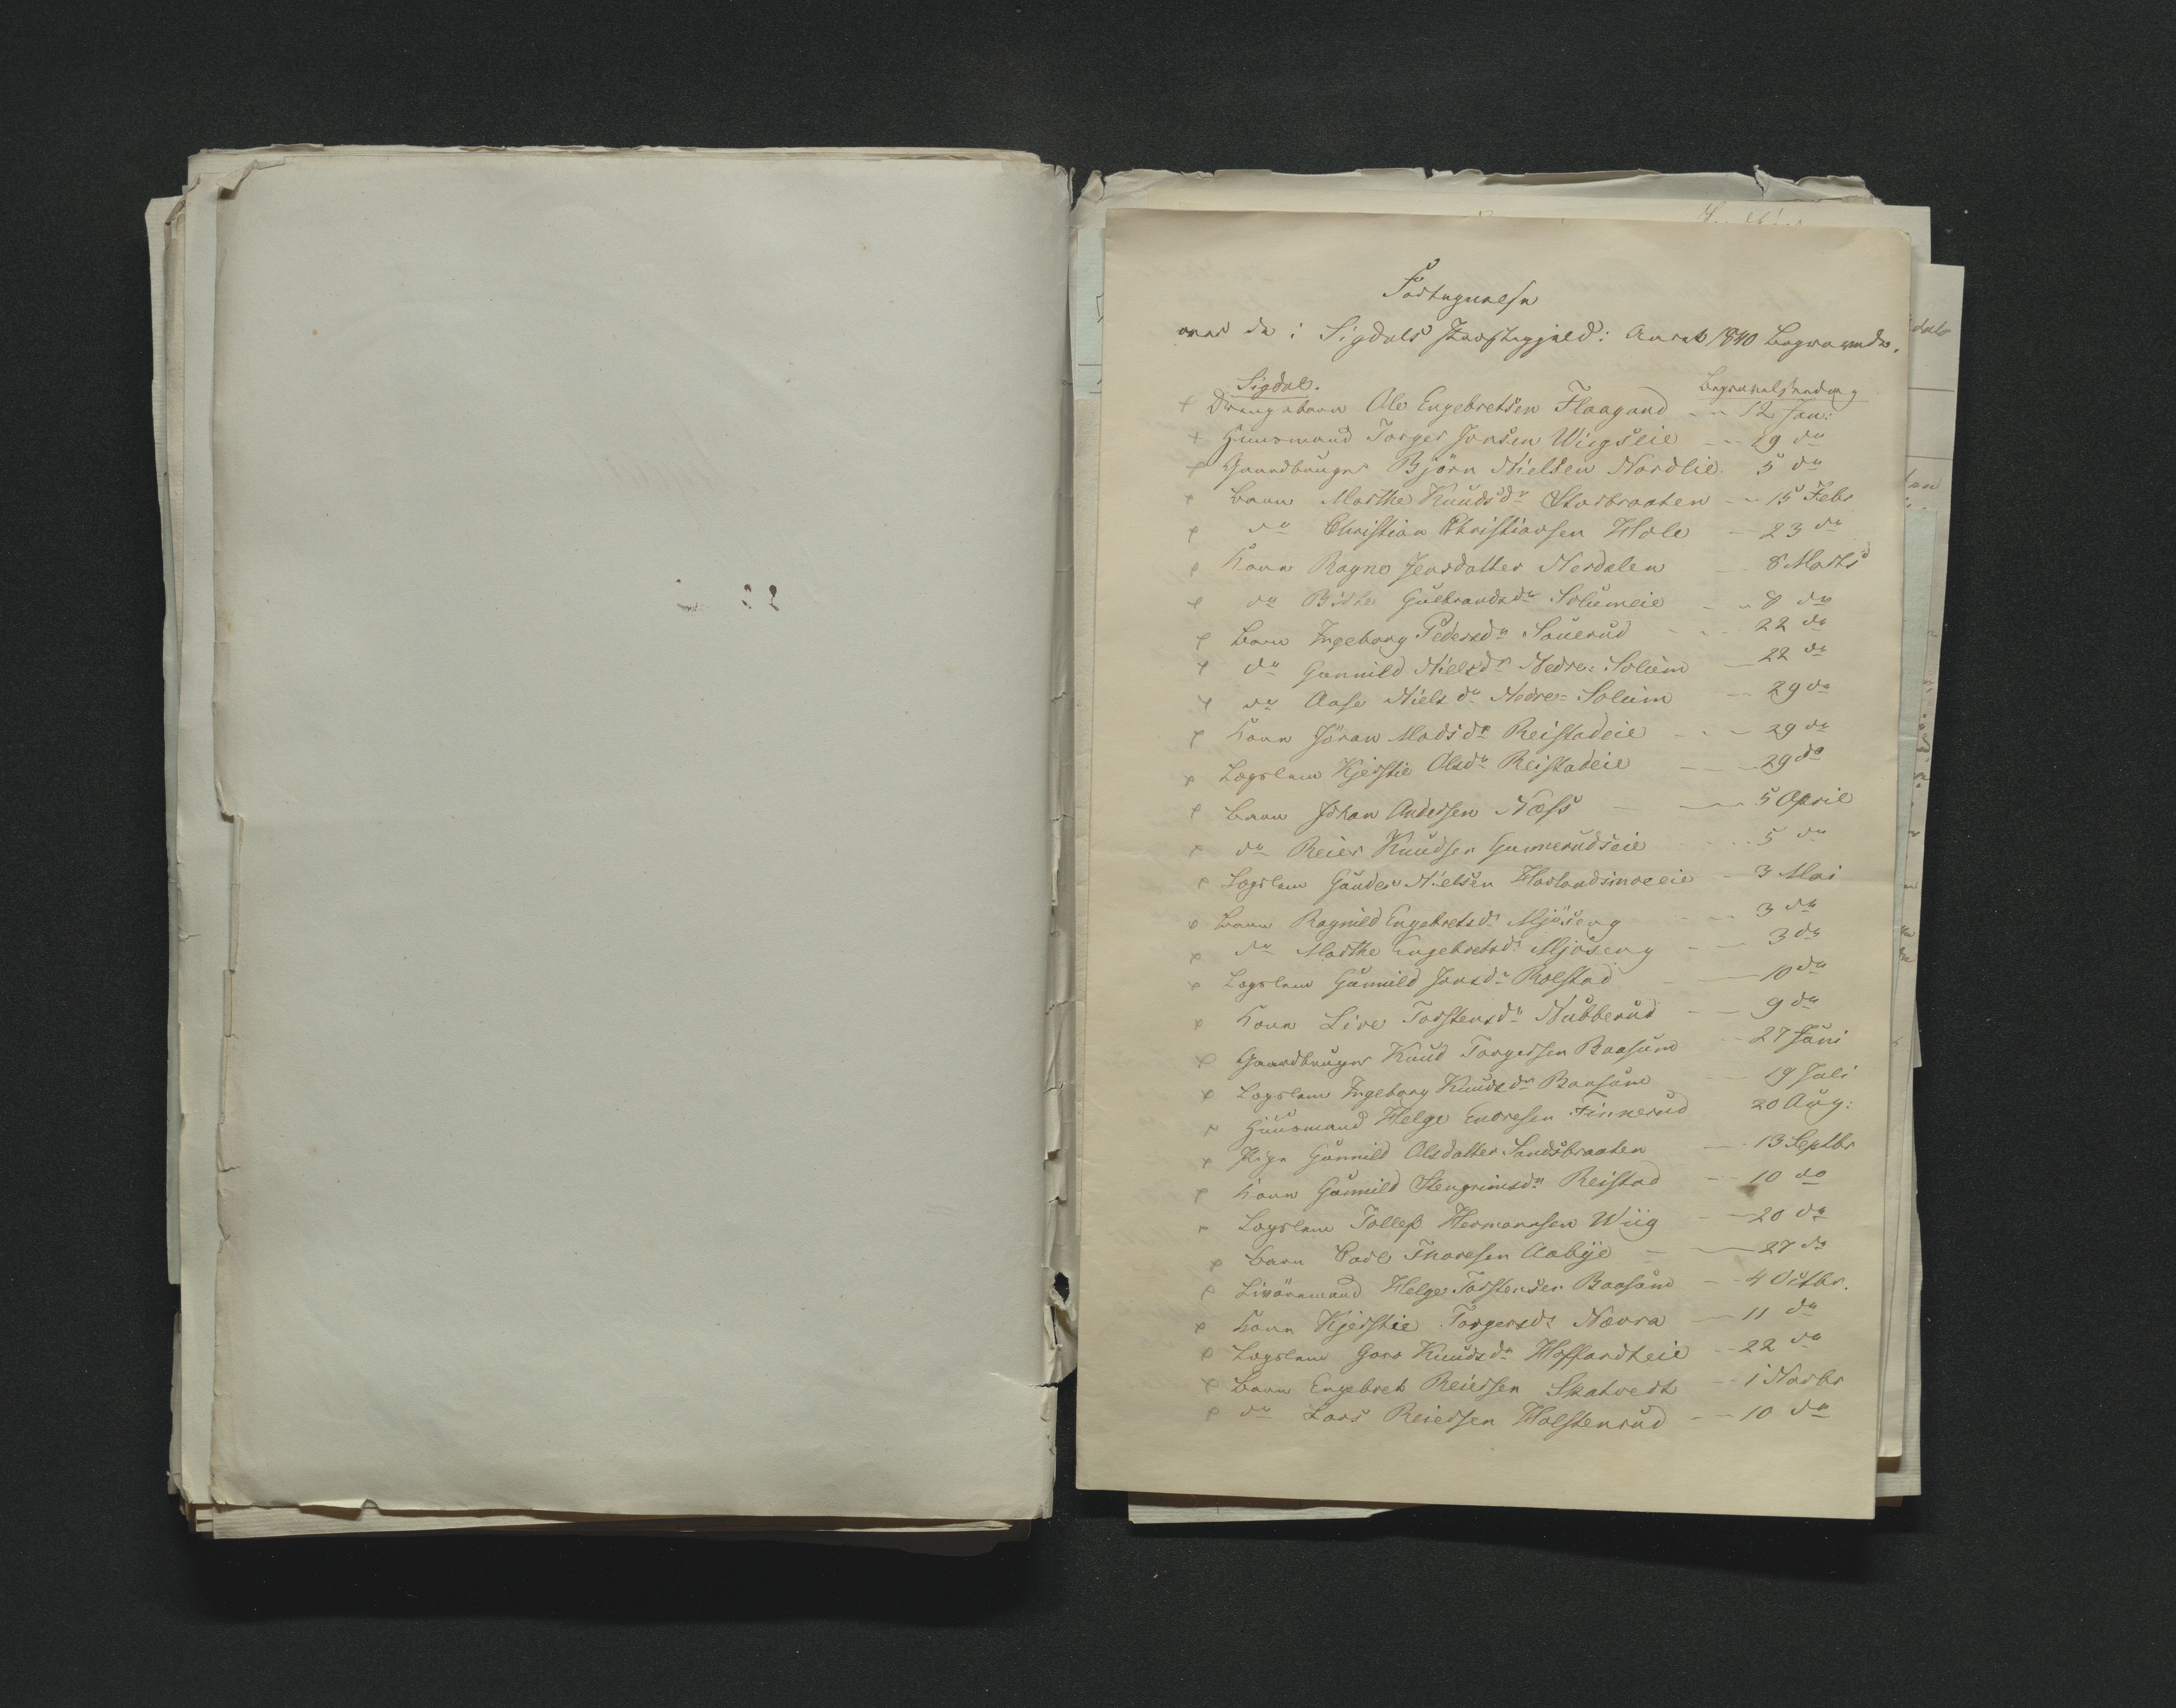 Fortegnelse
over de i Sigdals Præstegjeld i Aaret 1840 Begravede.
Sigdal. Begravelsesdag
Drengebarn Ole Engebretsen Flaagand 12 Jan:
Huusmand Torger Jonsen Wiigseie 29 do
Gaardbruger Björn Nielsen Nordlie 5 do
Barn Marthe Knudsdr Storbraaten 15 Febr
do Christian Christiansen Hole 23 do
Kone Ragne Jensdatter Nerdalen 8 Marts
do Birthe Gulbrandsdr Solumeie 8 do
Barn Ingeborg Pedersdr Souerud 22 do
do Gunnild Nielsdr Nedre-Solum 22 do
do Aase Nielsdr Nedre-Solum 29 do
Kone Jöran Madsdr Reistadeie 29 do
Lægslem Kjerstie Olsdr Reistadeie 29 do
Barn Johan Andersen Næss 5 April
do Reier Knudsen Gunnerudseie 5 do
Lægslem Gunder Nielsen Hovlandsmoeeie 3 Mai
Barn Ragnild Engebretsdr Mjöseng 3 do
do Marthe Engebretsdr Mjöseng 3 do
Lægslem Gunnild Jonsdr Rolstad 10 do
Kone Live Torstensdr Nubberud 9 do
Gaardbruger Knud Torgersen Baasum 27 Juni
Lægslem Ingeborg Knudsdr Baasum 19 Juli
Huusmand Helge Endresen Finnerud 20 Aug:
Pige Gunnild Olsdatter Sandsbraaten 13 Septbr
Kone Gunnild Stengrimsdr Reistad 10 do
Lægslem Tollef Hermansen Wiig 20 do
Barn Carl Thoresen Aabye 27 do
Livöremand Helge Torstensen Baasum 4 Octbr.
Kone Kjerstie Torgersdr Nævra 11 do
Lægslem Goro Knudsdr Hoffardteie 22 do
Barn Engebret Reiersen Skatvedt 1 Novbr
do Lars Reiersen Holstenrud 10 do